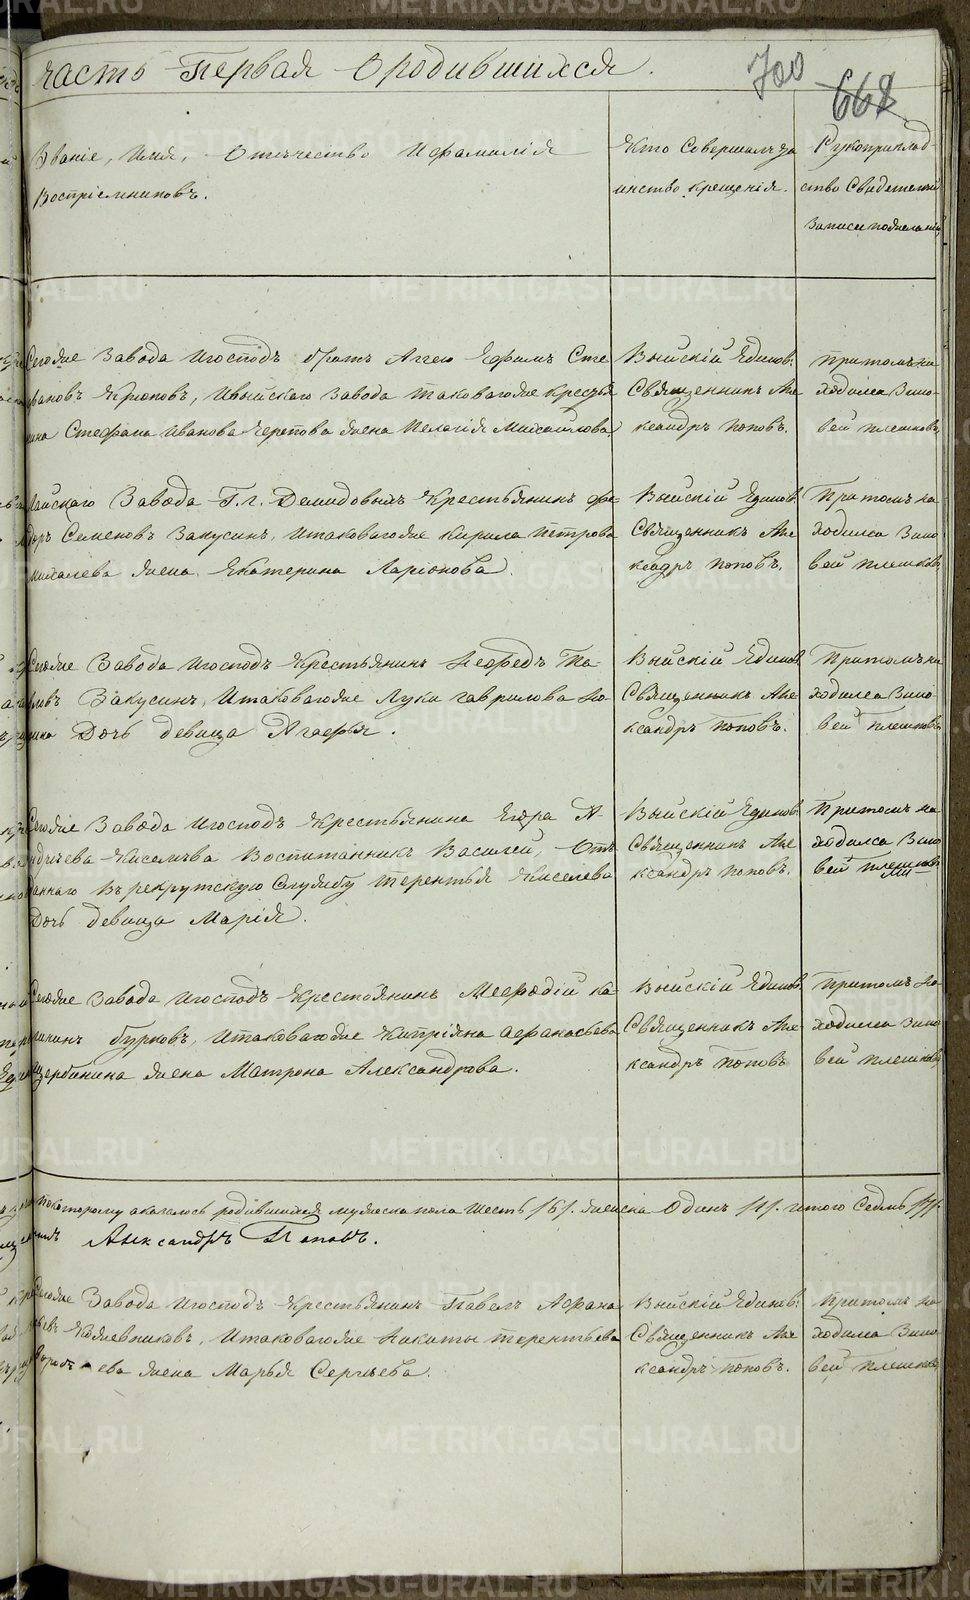 часть Первая О родившихся.
700
668
Званіе, Имя, Отечество И фамилія
Воспріемниковъ.
Кто Совершалъ та
инство крещенія.
Рукоприклад
ство Свидетелей
Записи по желанію
Тогоже Завода и господъ братъ Аггею Ефимъ Сте
пановъ, Ивыйскаго завода таковагоже крестья
нина Стефана Иванова жена Пелагія Михайлова
Выйскій Единов.
Священникъ Але
ксандръ Поповъ.
При томъ на
ходился Зино
вей Плешковъ
Завода Г.г. Демидовыхъ Крестьянинъ Фе
доръ Семеновъ Закусинъ, итаковагоже Кирила Петрова
жена Екатерина Ларіонова.
Выйскій Единов.
Священникъ Але
ксандръ Поповъ.
При томъ на
ходился Зино
вей Плешковъ
Тогоже Завода И господъ Крестьянинъ
Закусинъ, Итаковагоже Луки Гаврилова
Дочь девица Агафья.
Выйскій Единов
Священникъ Але
ксандръ Поповъ.
При томъ на
ходился Зино
вей Плешковъ
Тогоже Завода И господъ Крестьянина Егора А
Киселева Воспитанникъ Василей, Отъ
даннаго в рекрутскую Службу Терентья Киселева
Дочь девица Марія.
Выйскій Единов
Священникъ Але
ксандръ Поповъ.
При томъ на
ходился Зино
вей Плешковъ
Тогоже Завода И господъ Крестьянинъ Мефодій Ка
лининъ Бурковъ, Итаковагоже Кипріяна Афанасьева
Щербинина жена Матрона Александрова.
Выйскій Единов.
Священникъ Але
ксандръ Поповъ
При томъ на
ходился Зино
вей Плешковъ
По которому оказалось родившихся мужеска пола Шесть /6/. женска Одинъ /1/. итого Седмь /7/.
Александръ Поповъ.
Тогоже Завода И господъ Крестьянинъ Павелъ Афана
сьевъ Кожевниковъ, Итаковагоже Никиты Терентьева
жена Марья Сергеева.
Выйскій Единов.
Священникъ Але
ксандръ Поповъ.
При томъ на
ходился Зино
вей Плешковъ
METRIKI.GASO-URAL.RU